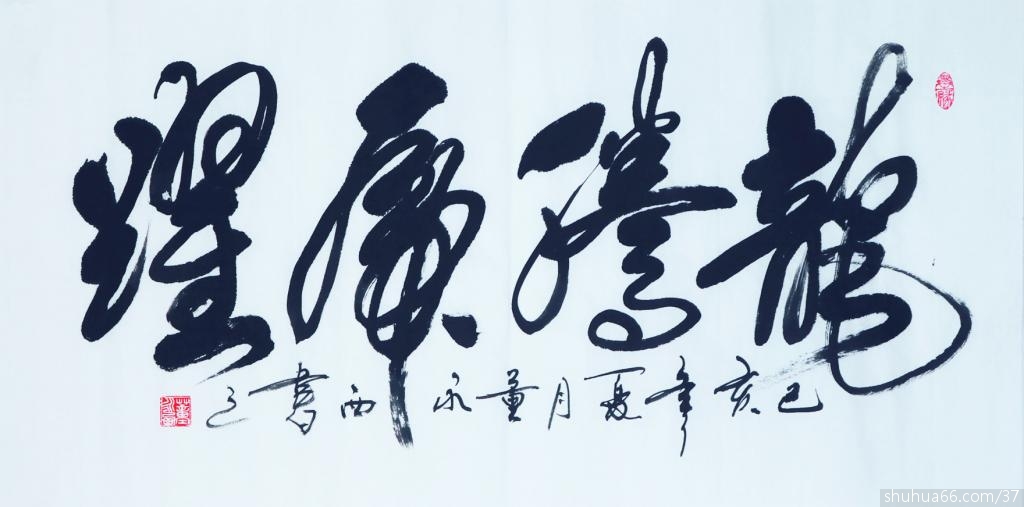 龍騰虎躍
己亥年夏月董永西書
shuhua66.com/37